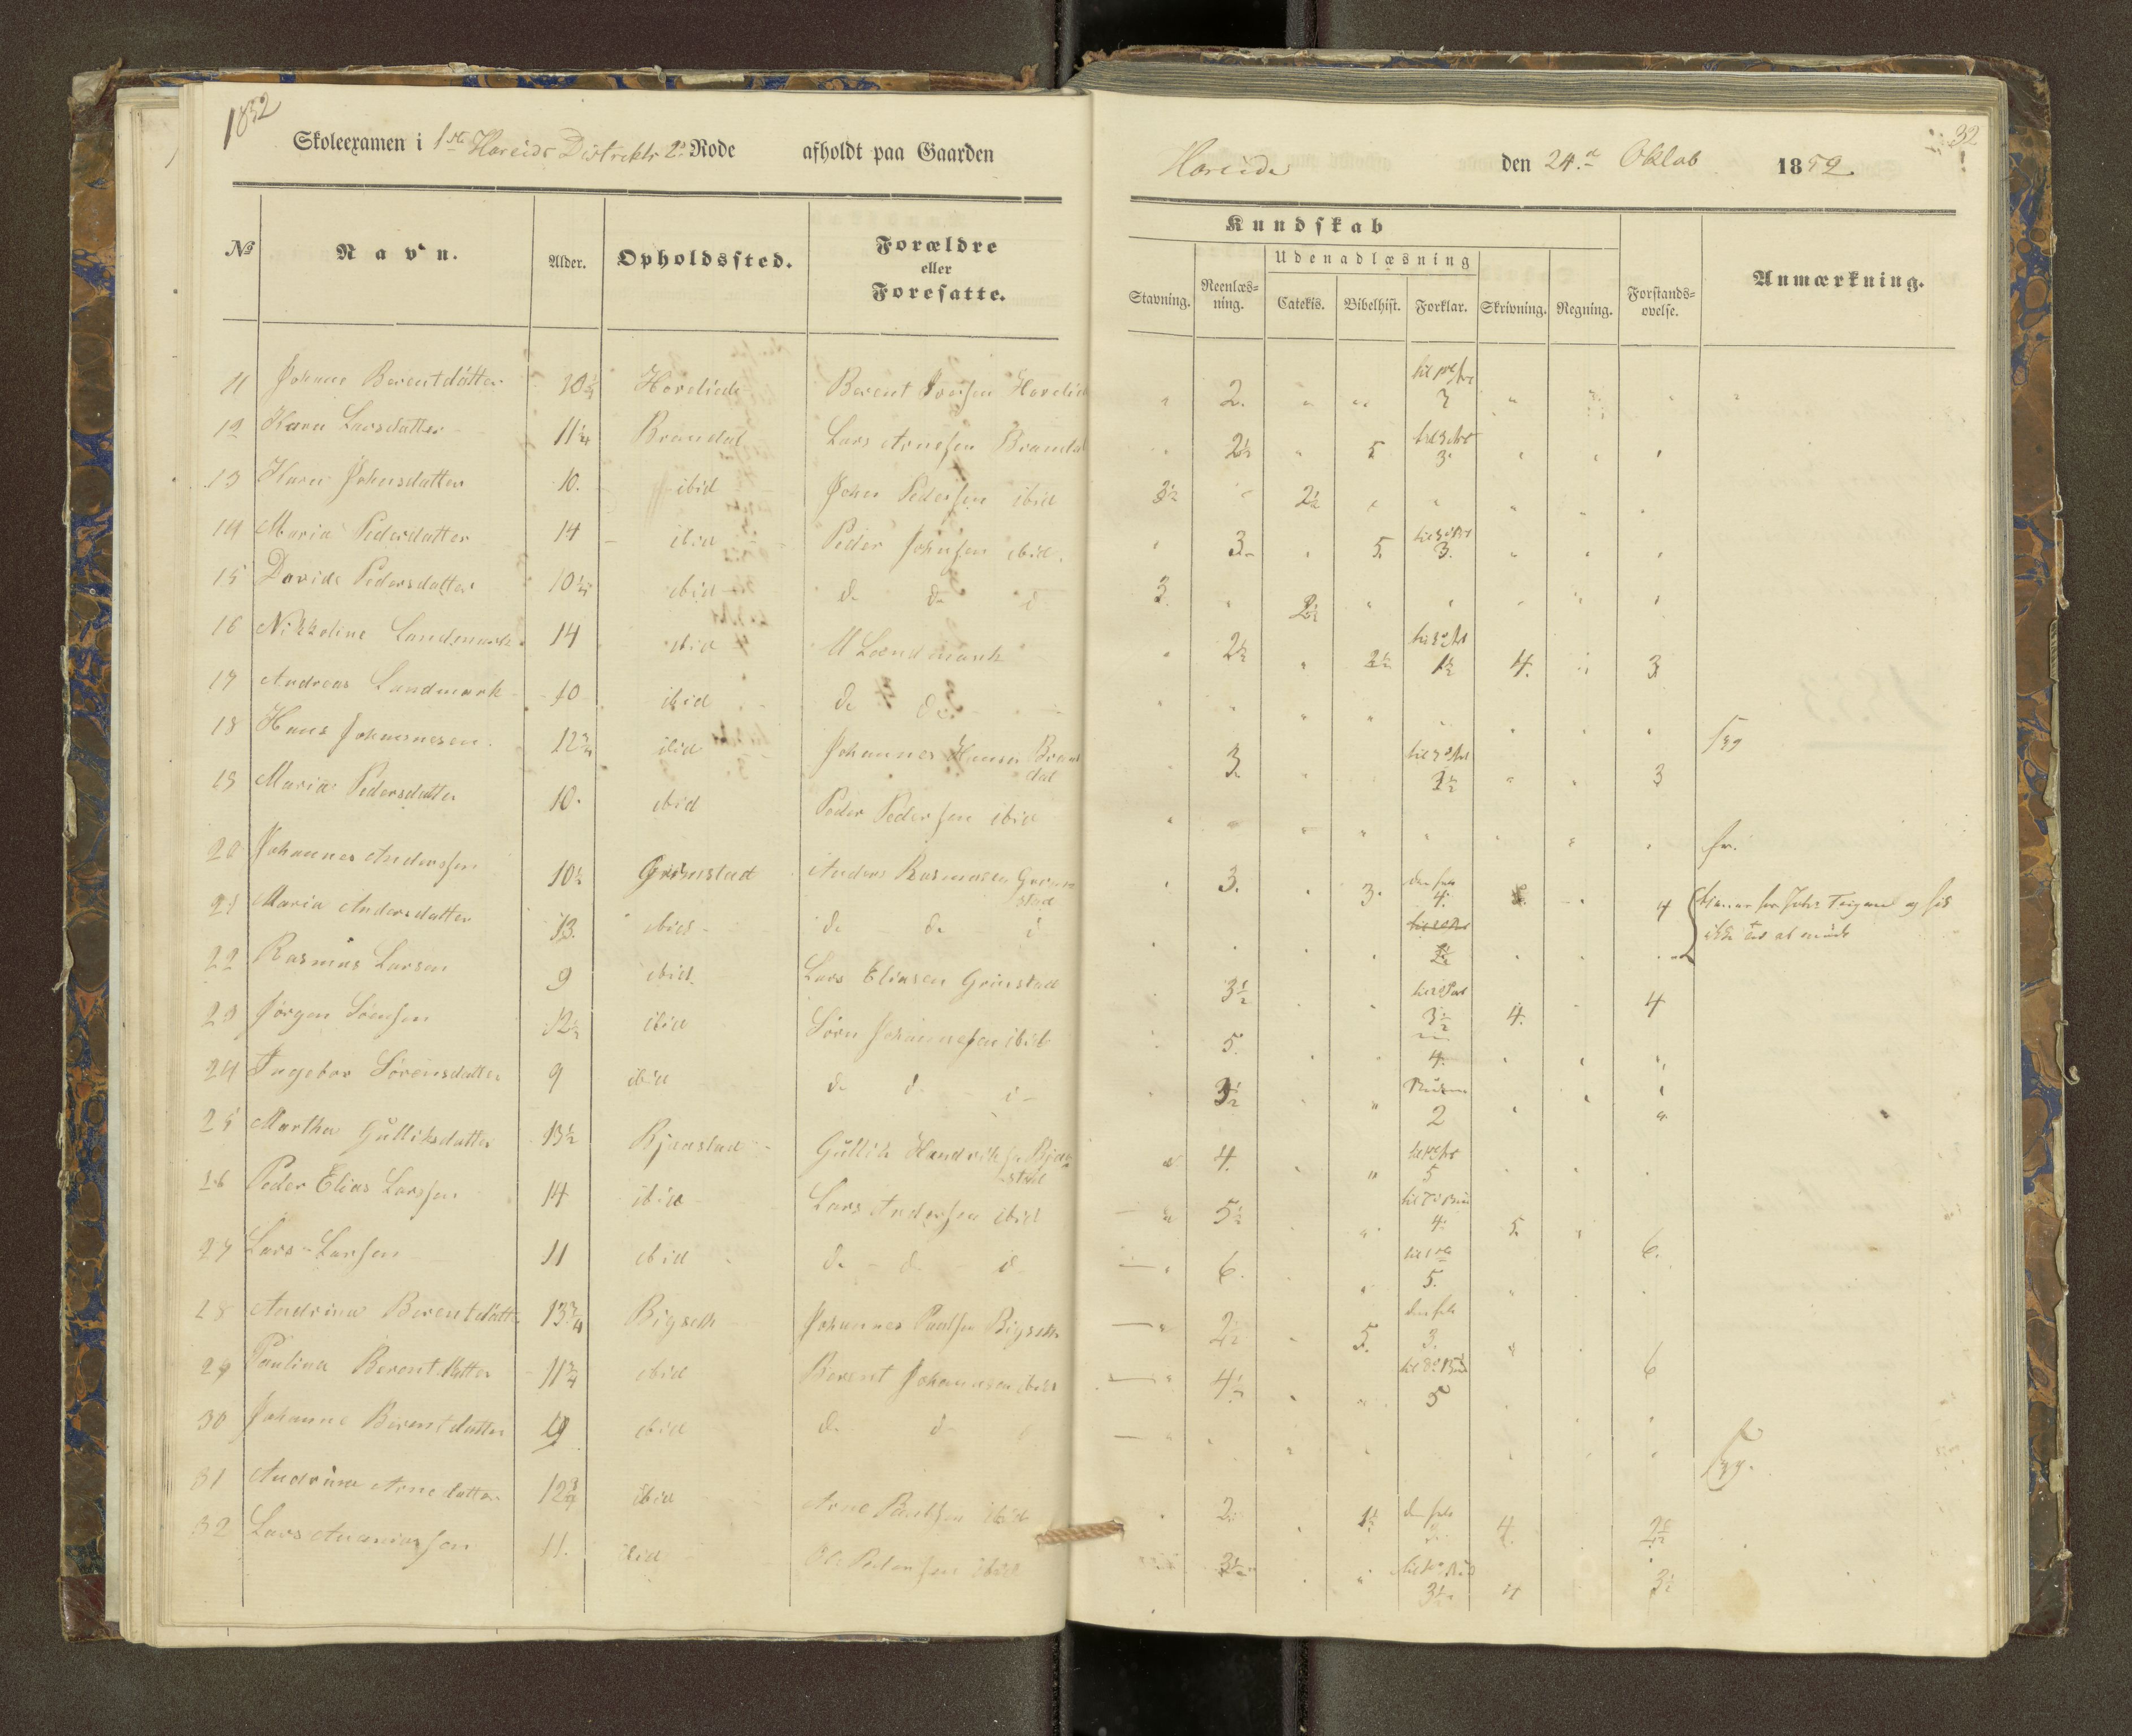 1852
Skoleexamen i 1ste Hareids Distrikts 2den Rode afholdt paa Gaarden
Hareide den 24de Oktob 1852
32
Kundskab
Udenadlæsning
No Navn. Alder. Opholdssted. Forældre eller Foresatte. Stavning. Reenlæs-ning. Catekis. Bibelhist. Forklar. Skrivning. Regning. Forstands-øvelse. Anmærkning.
11 Johanne Berentdatter 10 3/4 Hareide Berent Iversen Hareide 2. 3
12 Karen Larsdatter 11 1/4 Brandal Lars Arnesen Brandal 2 1/2 5 3
13 Karen Johnsdatter 10. ibid John Pedersen ibid 3 1/2 2 1/2
14 Maria Pedersdatter 14 ibid Peder Johnsen ibid 3 5 3.
15 Davide Pedersdatter 10 1/2 ibid do do i 3. 2 1/2
16 Nikkoline Landmark 14 ibid Landmark 2 1/2 2 1/2 1 1/2 4. 3
17 Andreas Landmark 10 ibid do do syg
18 Hans Johannesen 12 3/4 ibid Johannes Hansen Brandal 3 3 1/2 3
19 Maria Pedersdatter 10. ibid Peder Pedersen ibid fr.
20 Johannes Anderssen 10 1/2 Grimstad Anders Rasmusen Grimstad 3. 3. samme 4. 4
21 Maria Andersdatter 13. ibid do do i 2 1/2 ikke tid at møde
22 Rasmus Larsen 9 ibid Lars Eliasen Grimstad 3 1/2 3 1/2 4. 4
23 Jørgen Sørensen 12 1/2 ibid Sørn Johannesen ibid 5. 4
24 Ingebor Sørensdatter 9 ibid do d i 3 1/2 2
25 Martha Gulliksdatter 13 1/2 Bjaastad Gullik Hendriksen Bjaastad 4. 5
26 Peder Elias Larssen 14 ibid Lars Andersen ibid 5 1/2 4 5 6.
27 Lars Larsen 11 ibid do do i 6. 5.
28 Andrina Berentdatter 13 3/4 Bigseth Johannes Paulsen Bigseth 2 1/2 5. 3. 6
29 Paulina Berentdatter 11 3/4 ibid Berent Johannsen ibid 4 1/2 5
30 Johanne Berentdatter 9 ibid do d syg.
31 Andrina Arnedatter 12 3/4 ibid Arne Paulsen ibid 2. 1 1/2 4. 2 1/2
32 Lars Ananiassen 11. ibid Ole Pedersen ibid 3 1/2 3 1/2 4 3 1/2